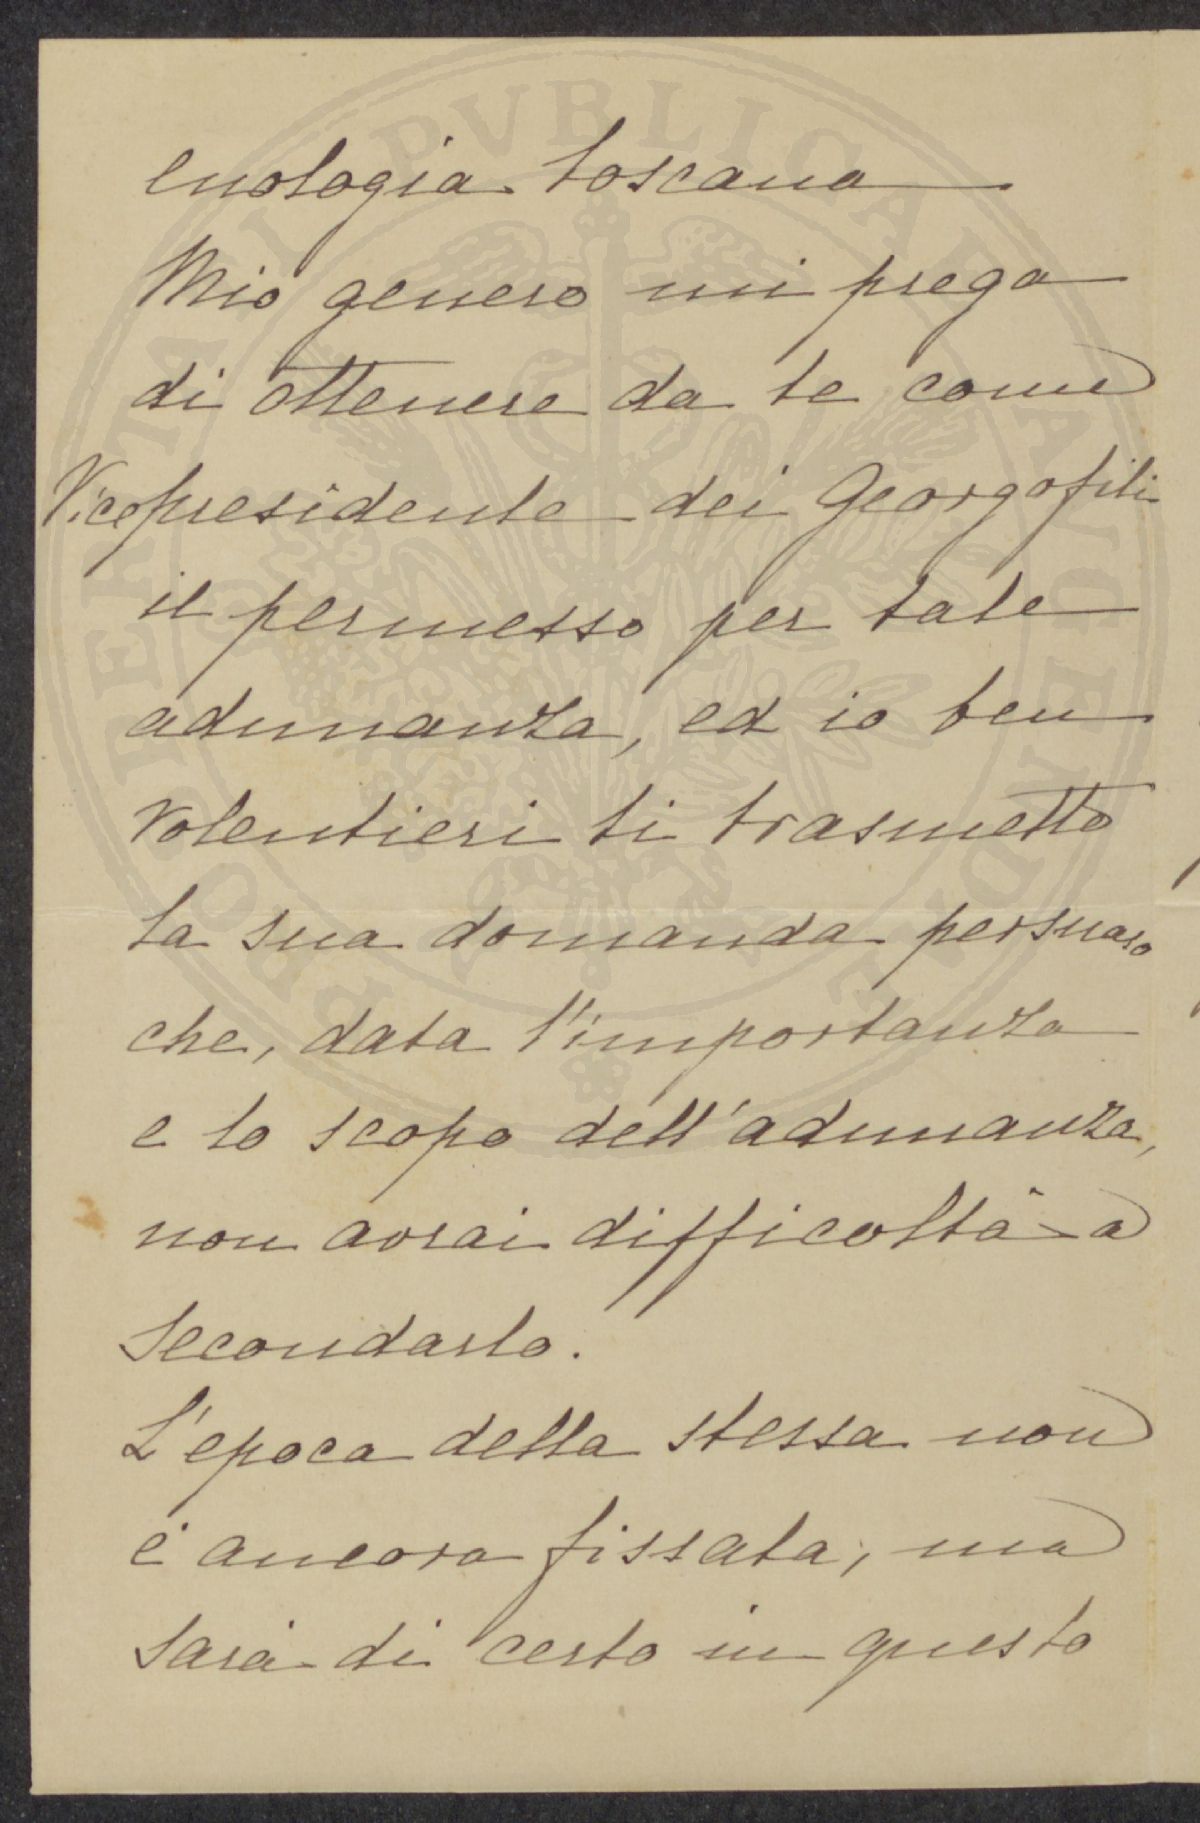 enologia toscana
Mio genero mi prega
di ottenere da te come
Vicepresidente dei Georgofili
il permesso per tale
adunanza, ed io ben
volentieri ti trasmetto
la sua domanda persuaso
che, data l'importanza
e lo scopo dell'adunanza,
non avrai difficoltà a
secondarlo.
L'epoca della stessa non
è ancora fissata, ma
sarà di certo in questo
PROSPERITATI PUBLICAE AUGENDAE